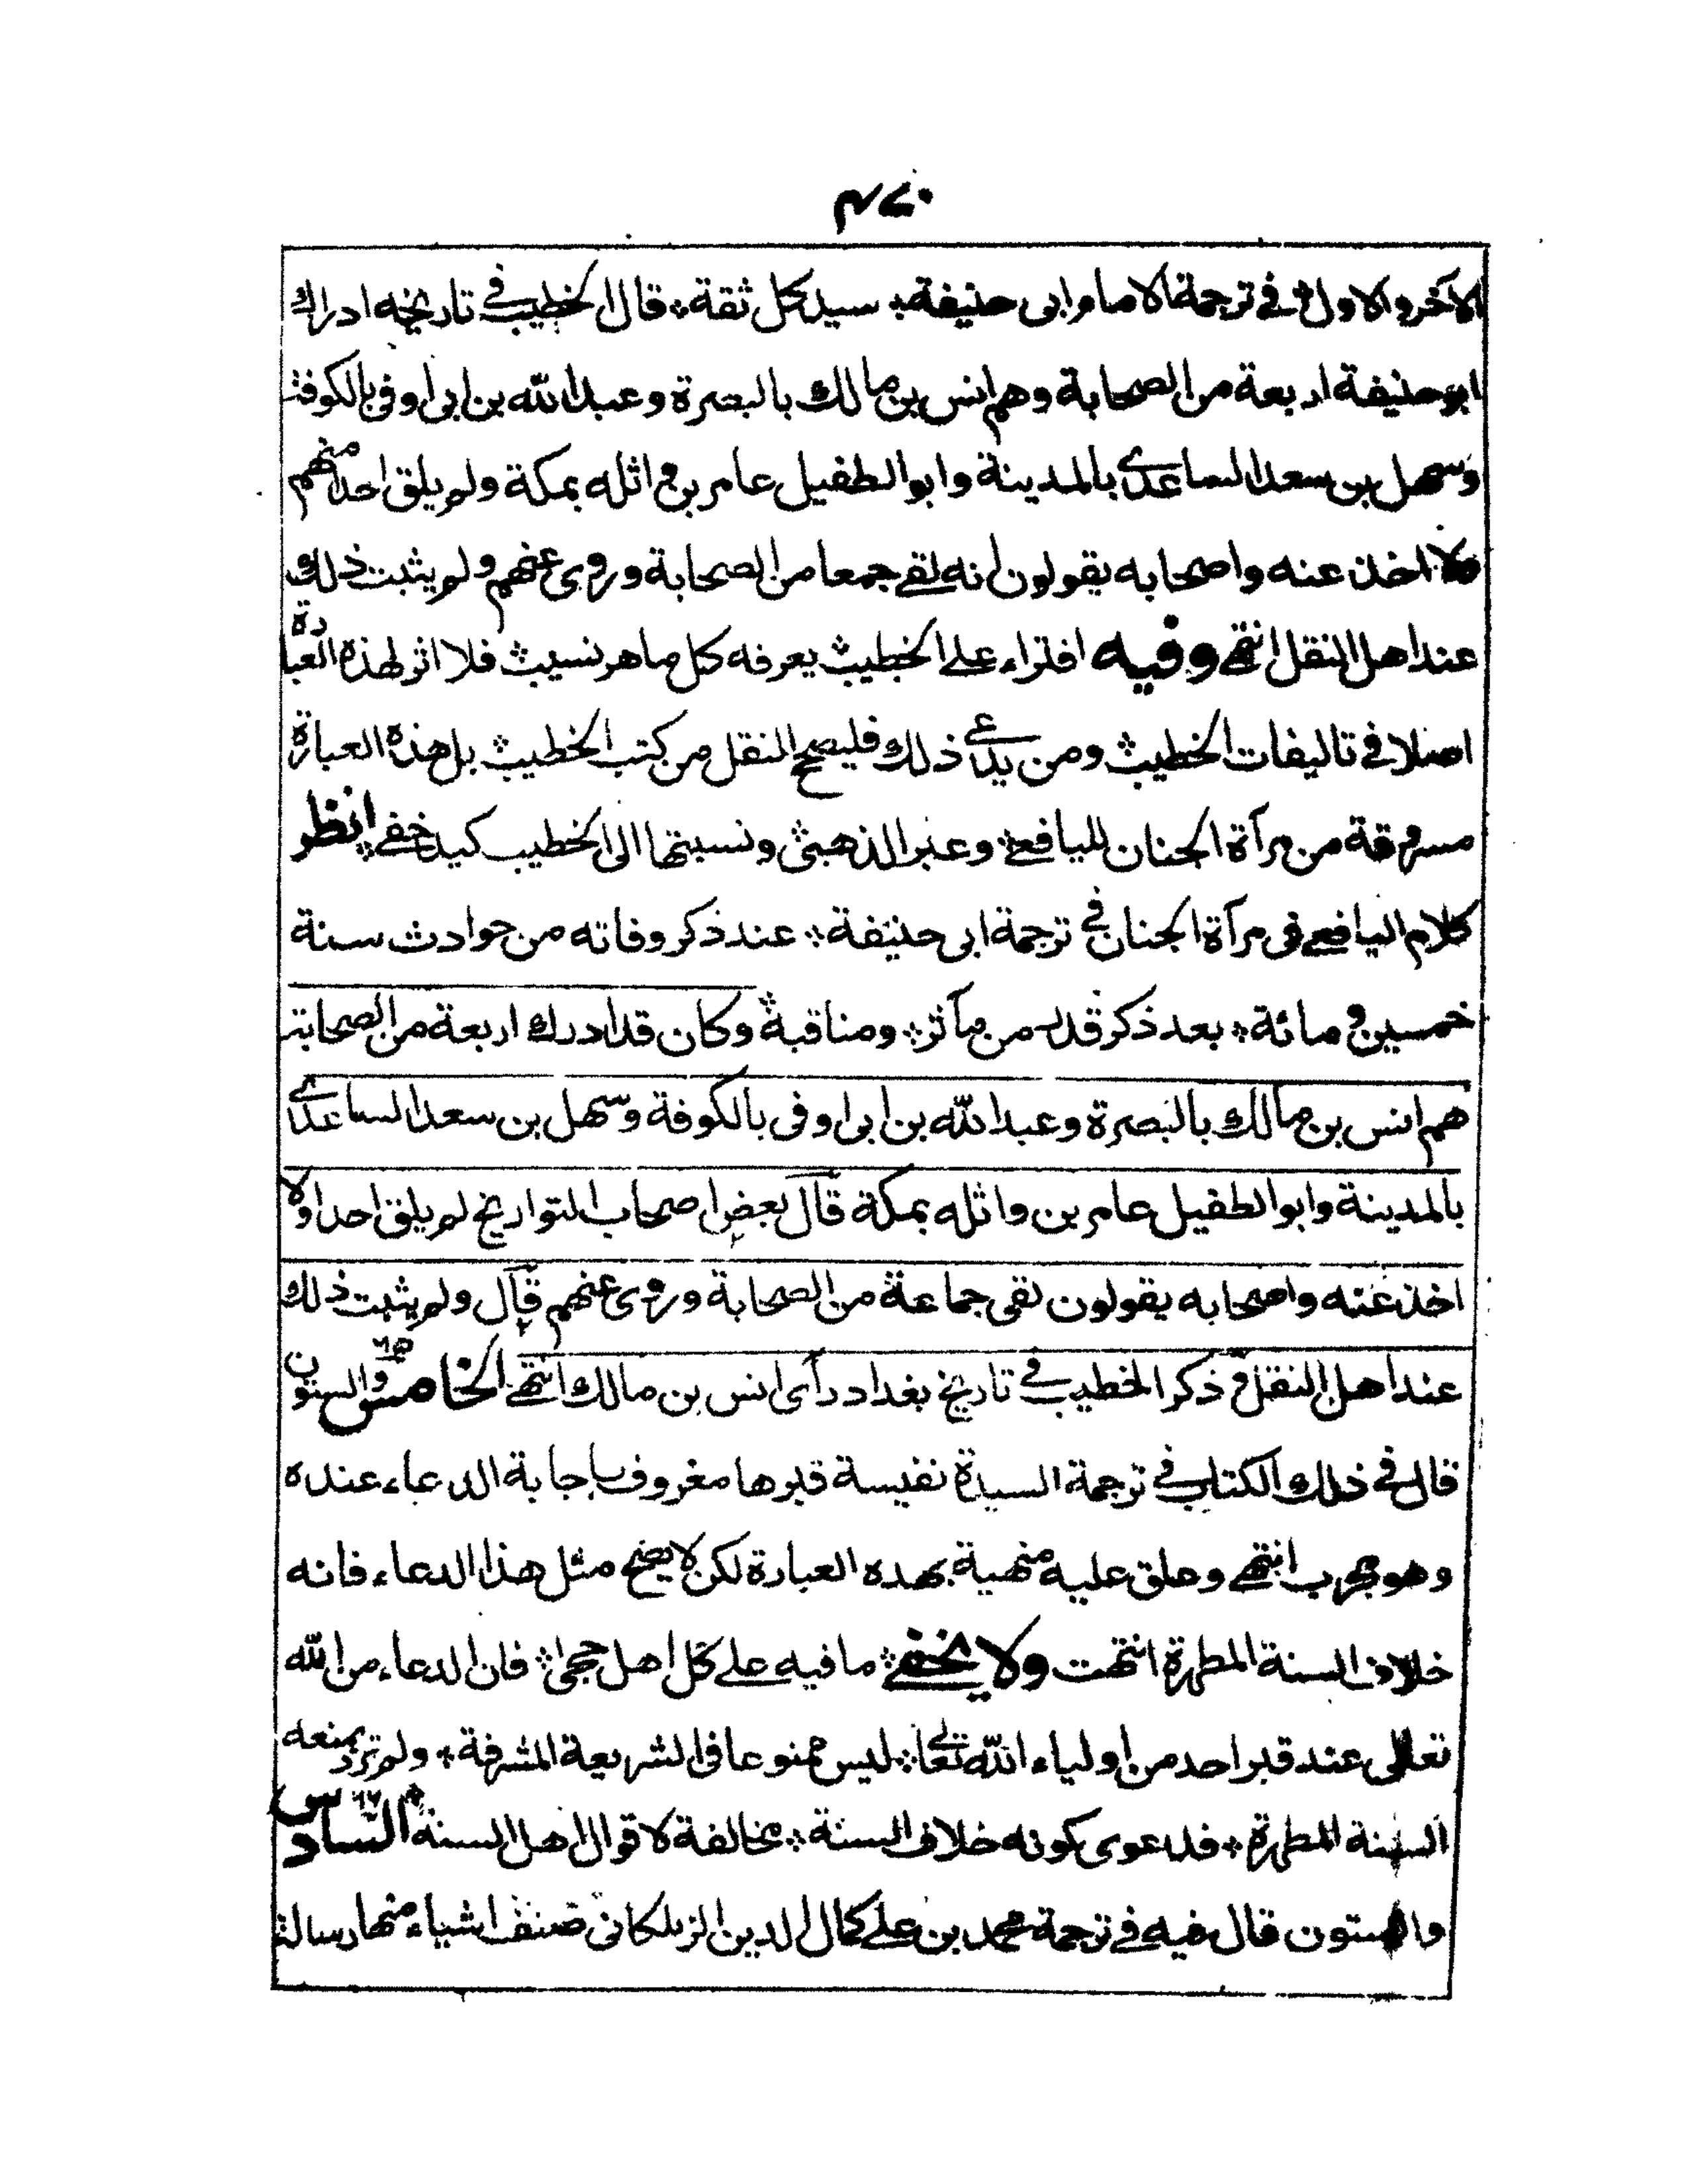 الآخر والاول في ترجمة الامام ابى حنيفة سيد كل ثقة قال الخطيب في تاريخه ادراك
ابو حنيفة اربعة من الصحابة وهم انس بن مالك بالبصرة وعبد الله بن ابى اوفى بالكوفة
وسهل بن سعد الساعدى بالمدينة وابو الطفيل عامر بن واثله بمكة ولم يلق احدا منهم
ولا اخذ عنه واصحابه يقولون انه لقي جمعا من الصحابة وروى عنهم ولم يثبت ذلك
عند اهل النقل انتهى وفيه افتراء على الخطيب يعرفه كل ماهر نسيب فلا اثر لهذه العبارة
اصلا في تاليفات الخطيب ومن يدعى ذلك فليصحح النقل من كتب الخطيب بل هذه العبارة
مسروقة من مرآة الجنان لليافعي وعبر الذهبي ونسبتها الى الخطيب كيد خفي انظر
كلام اليافعي فى مرآة الجنان في ترجمة ابى حنيفة عند ذكر وفاته من حوادث سنة
خمسين ومائة بعد ذكر قدر من مآثره ومناقبه وكان قد ادرك اربعة من الصحابة
هم انس بن مالك بالبصرة وعبد الله بن ابى اوفى بالكوفة وسهل بن سعد الساعدى
بالمدينة وابو الطفيل عامر بن واثله بمكة قال بعض اصحاب التواريخ لم يلق احدا ولا
اخذ عنه واصحابه يقولون لقى جماعة من الصحابة وروى عنهم قال ولم يثبت ذلك
عند اهل النقل وذكر الخطيب في تاريخ بغداد رأى انس بن مالك انتهى الخامس والستون ٦٥
قال في ذلك الكتاب في ترجمة السيدة نفيسة قبرها معروف باجابة الدعاء عنده
وهو مجرب انتهى وعلق عليه منهية بهده العبارة لكن لا يصح مثل هذا الدعاء فانه
خلاف السنة المطهرة انتهت ولا يخفى ما فيه على كل اهل حجى فان الدعاء من الله
تعالى عند قبر احد من اولياء الله تعالى ليس ممنوعا فى الشريعة المشرفة ولم ترد بمنعه
السنة المطهرة فدعوى كونه خلاف السنة مخالفة لاقوال اهل السنة السادس ٦٦
والستون قال فيه في ترجمة محمد بن على كمال الدين الزملكانى صنف اشياء منها رسالة